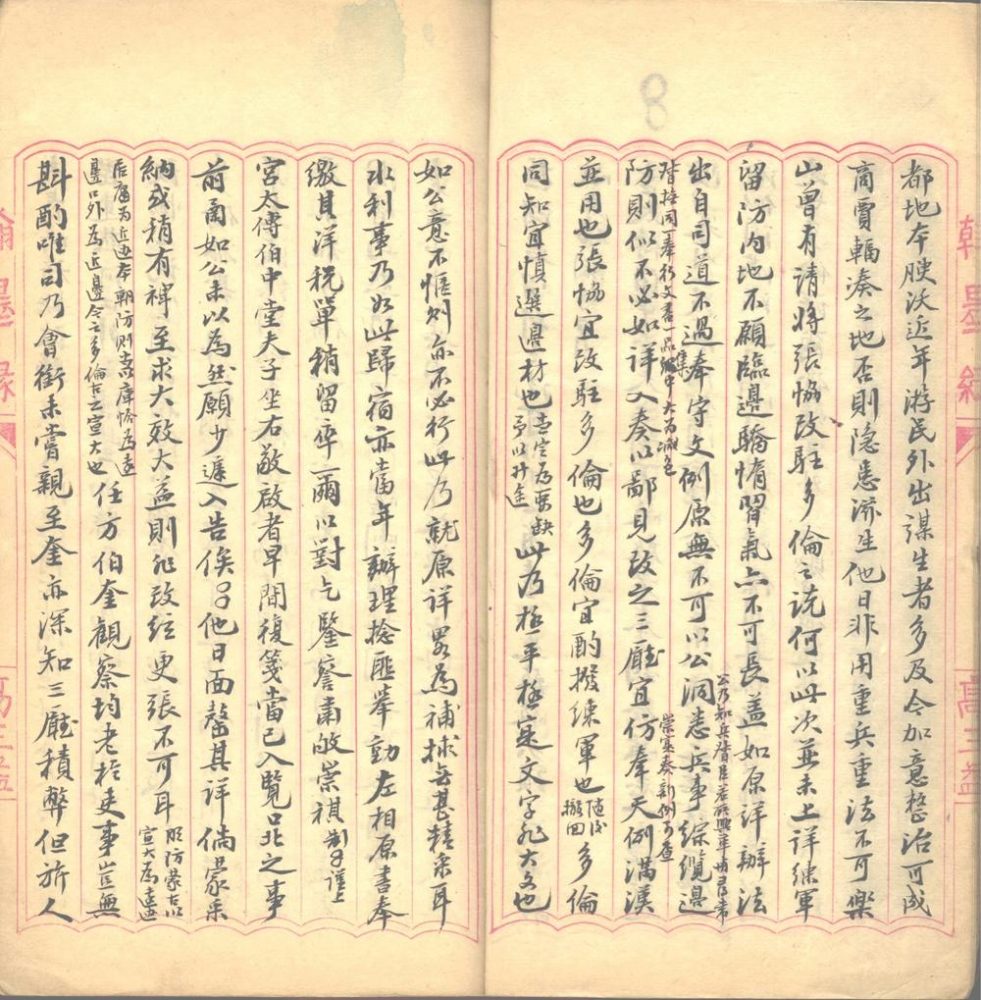 8
都地本腴沃近年游民外出謀生者多及今加意整治可成
商賈輻湊之地否則隱患潛生他日非用重兵重法不可樂
山曾有請將張協改駐多倫之說何以此次並未上詳練軍
留防內地不願臨邊驕惰習氣亦不可長蓋如原詳辦法
出自司道不過奉守文例原無不可以公洞悉兵事綜纜邊
防則似不必如詳入奏以鄙見改之三廳宜仿奉天例滿漢
並用也張協宜改駐多倫也多倫宜酌撥練軍也隨後撤回多倫
同知宜慎選邊材也並定為要缺予以升途此乃極平極寔文字非大文也
如公意不愜則亦不必行此乃就原詳畧為補捄無甚精采耳
水利事乃如此歸宿亦當年辦理捻匪舉動左相原書奉
繳其洋稅單稍留卒一兩以對乞鑒詧肅敬崇祺制子謹上
宮太傅伯中堂夫子坐右敬啟者早間復箋當已入覽口北之事
前函如公未以為然願少遲入告俟弓他日面罄其詳倘蒙采
納或稍有裨至求大效大益則非改弦更張不可耳明防蒙古以宣大為遠邊
后庫為近邊本朝防則以庫恰為遠邊口外為近邊今之多倫古之宣大也任方伯奎觀察均老於吏事豈無
斟酌唯司乃會銜未嘗親至奎亦深知三廳積弊但旂人
翰墨緣
高三益